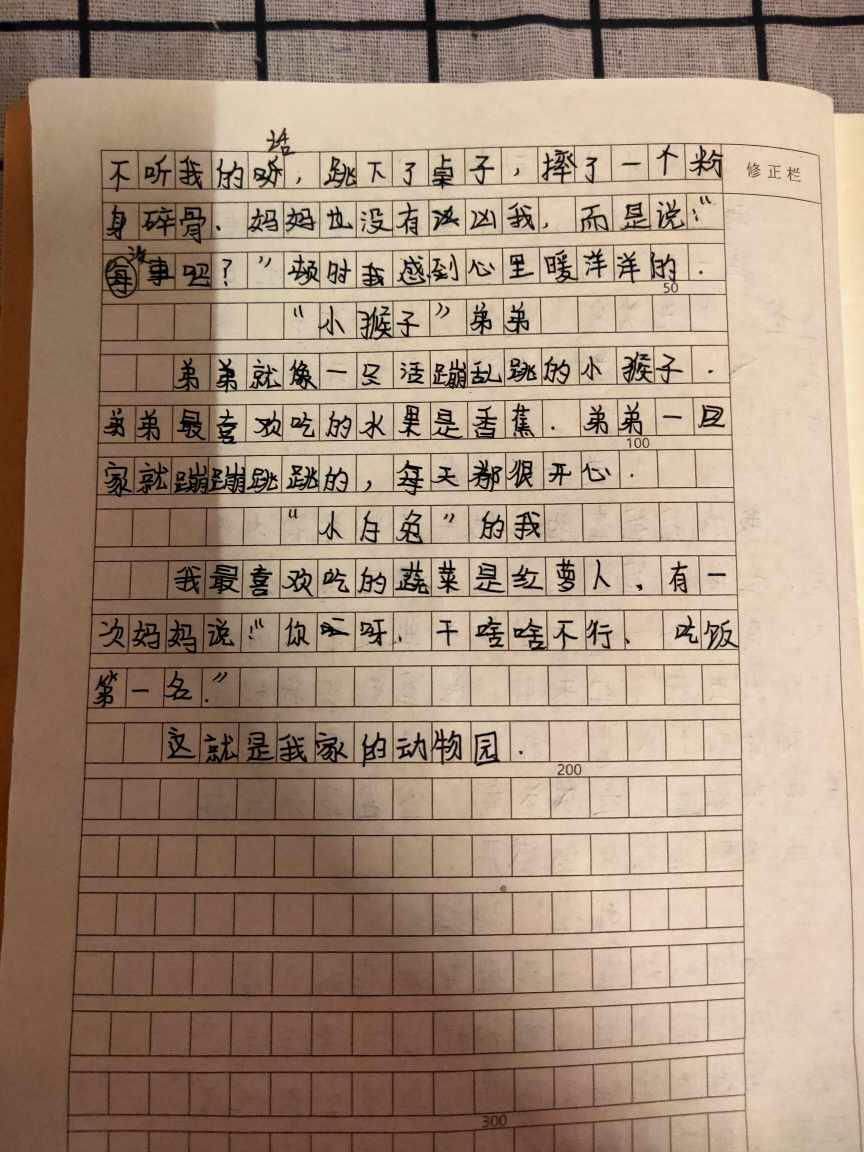 话
不听我的，跳下了桌子，摔了一个粉
修正栏
身碎骨．妈妈也没有凶我，而是说：“
没
每事吧？”顿时我感到心里暖洋洋的．
50
“小猴子”弟弟
弟弟就像一只活蹦乱跳的小猴子．
弟弟最喜欢吃的水果是香蕉．弟弟一回
100
家就蹦蹦跳跳的，每天都很开心．
“小白兔”的我
我最喜欢吃的蔬菜是红萝人，有一
次妈妈说：“你呀．干啥啥不行、吃饭
第一名．”
这就是我家的动物园．
200
300